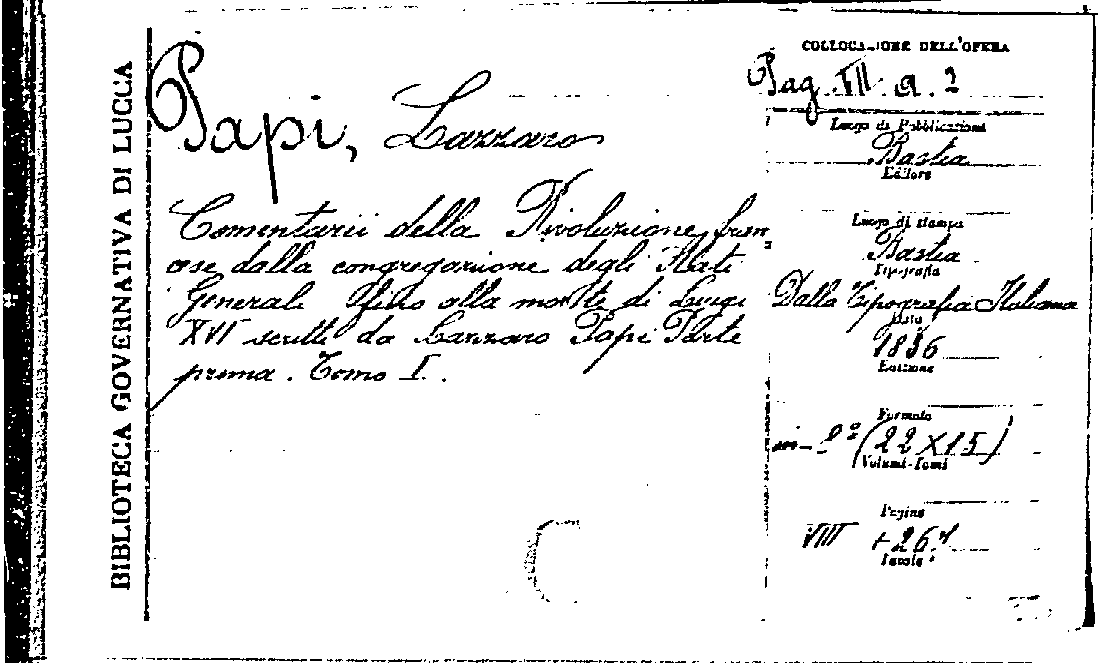 BIBLIOTECA GOVERNATIVA DI LUCCA
Papi, Lazzaro
Comentarii della Rivoluzione fran
cese dalla congregazione degli Stati
Generali fino alla morte di Luigi
XVI scritti da Lazzaro Papi Parte
prima. Tomo I.
COLLOCAZIONE DELL'OPERA
Pag. VII. a. 2
Luogo di Pubblicazione
Bastia
Editore
Luogo di stampa
Bastia
Tipografia
Dalla Tipografia Italiana
Data
1836
Edizione
Formato
in-8º (22 X 15)
Volumi-Tomi
Pagine
VIII + 267
Tavole